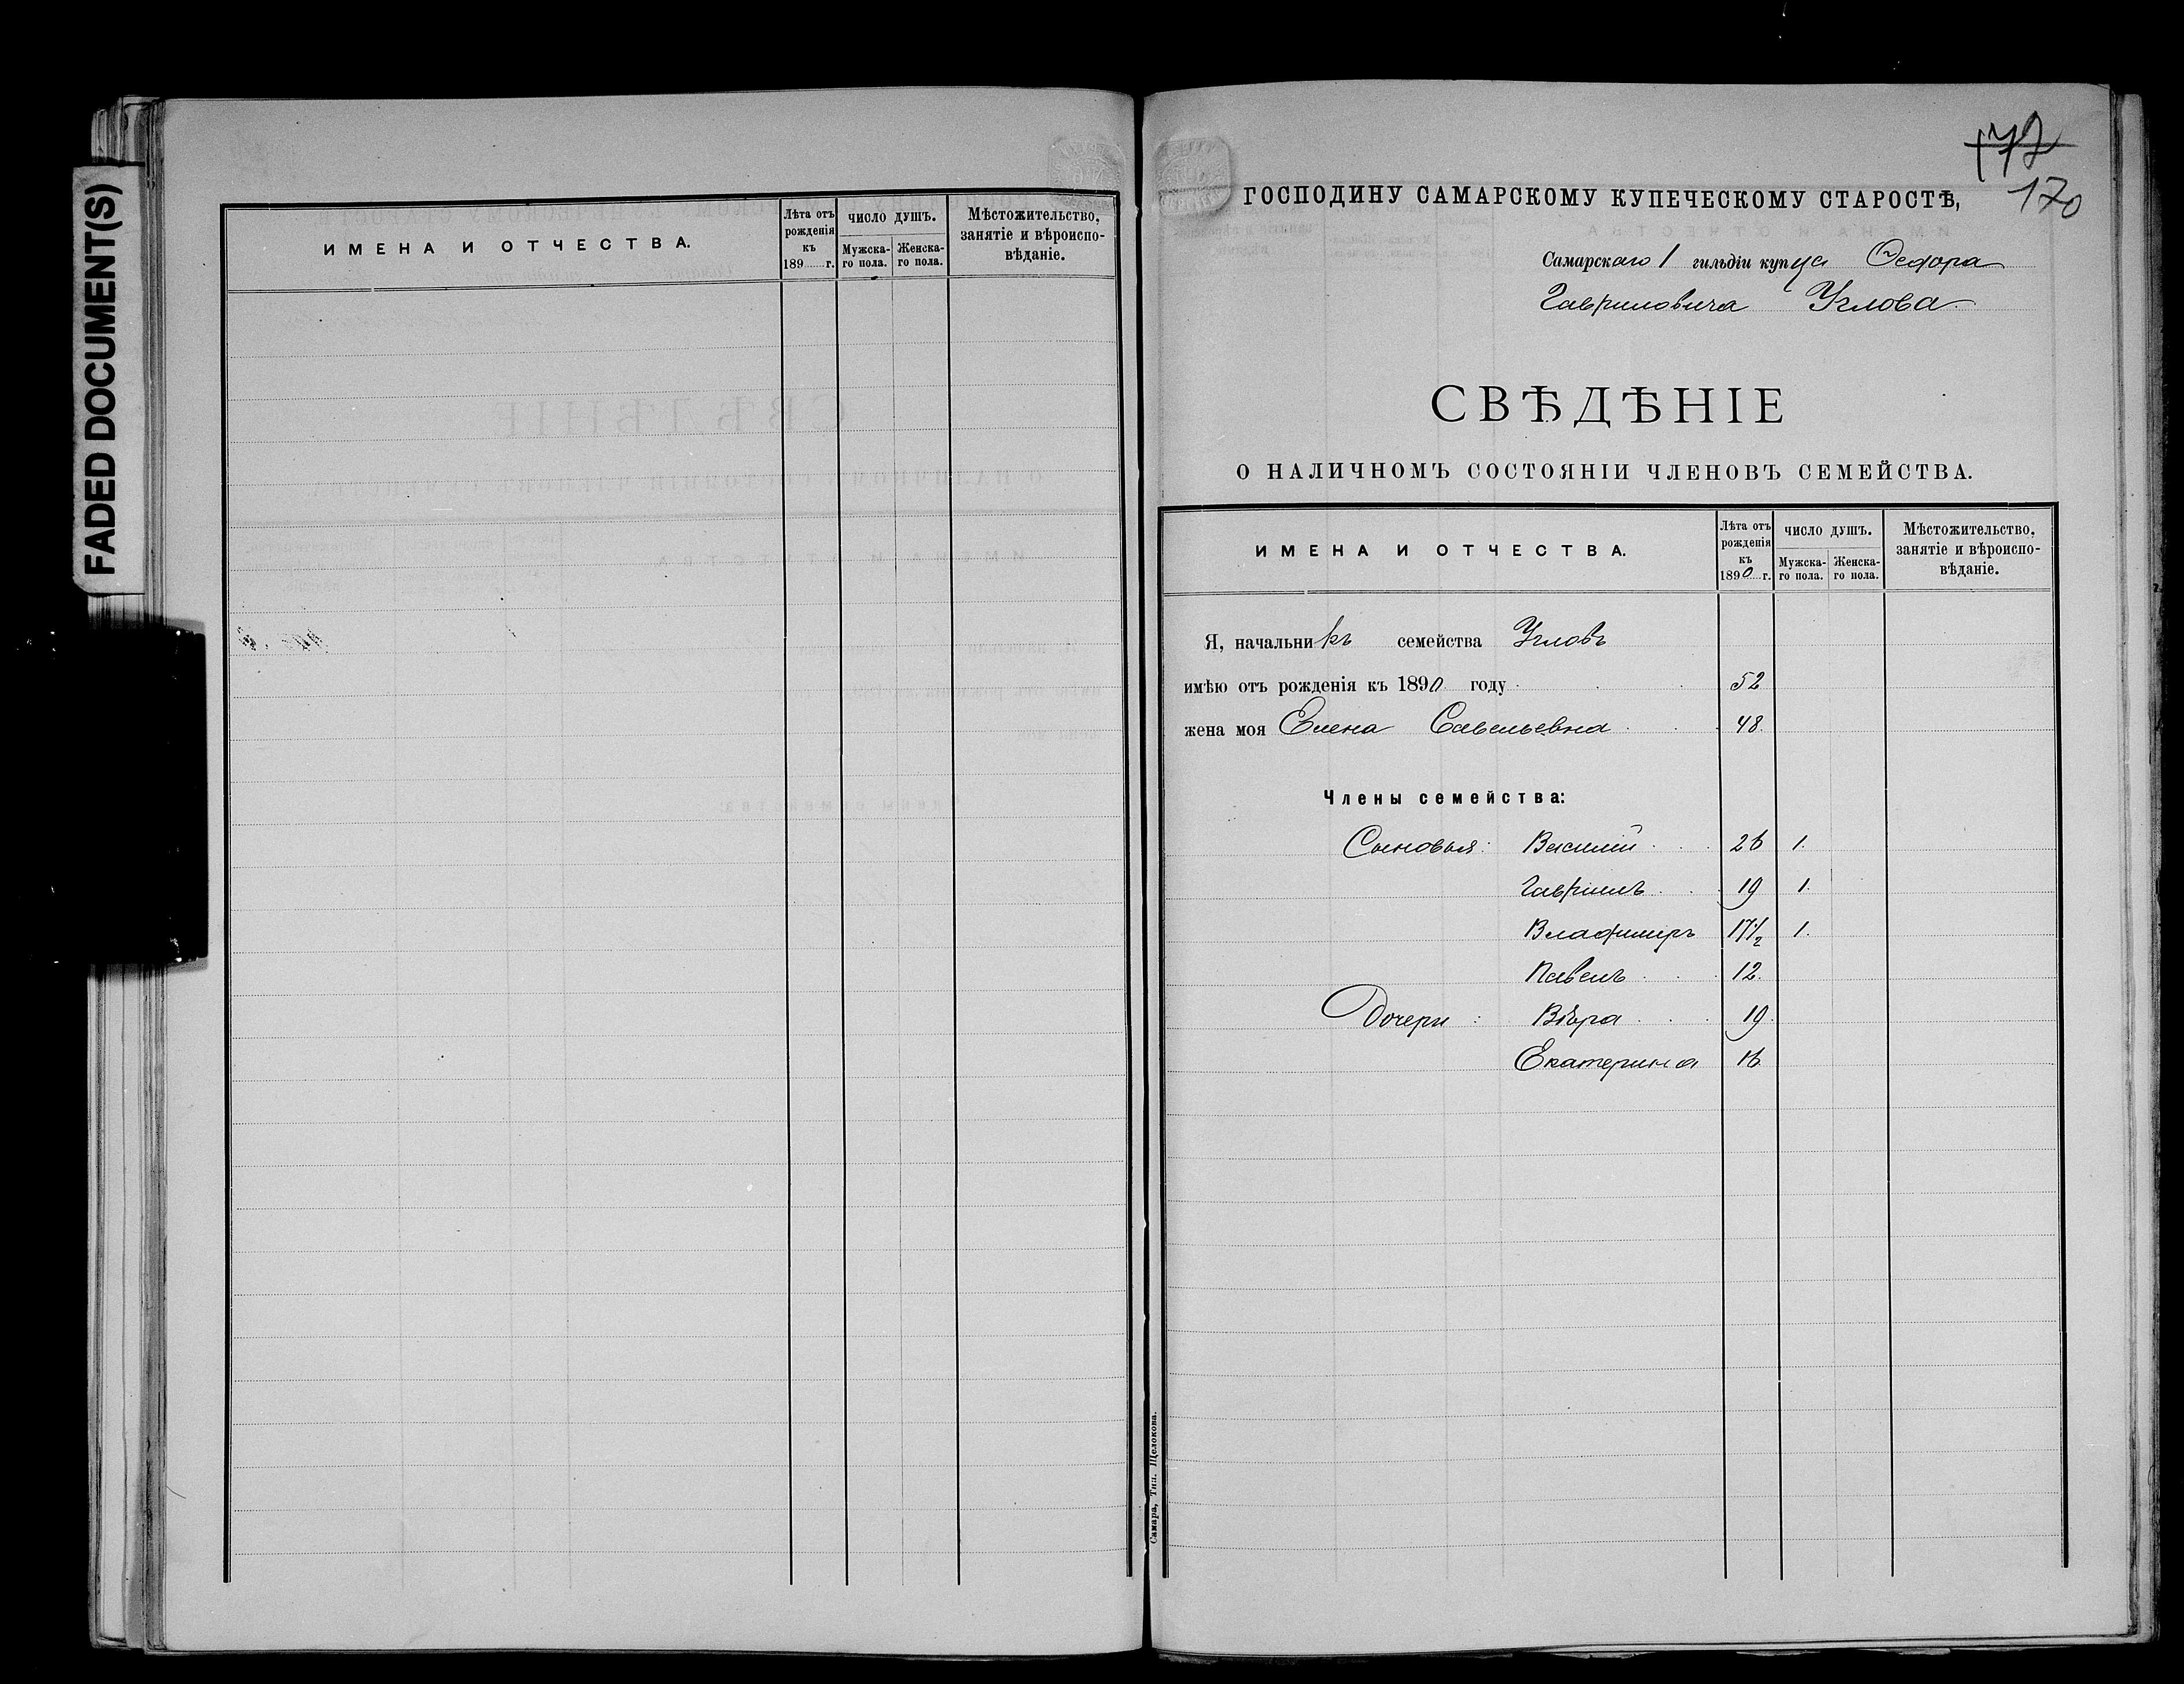 FADED DOCUMENT(S)
ИМЕНА И ОТЧЕСТВА.
Лѣта отъ рожденія къ 189 г.
ЧИСЛО ДУШЪ.
Мужска-го пола.
Женска-го пола.
Мѣстожительство, занятіе и вѣроиспо-вѣданіе.
172
170
ГОСПОДИНУ САМАРСКОМУ КУПЕЧЕСКОМУ СТАРОСТѢ,
Самарскаго 1 гильдіи купца Ѳедора
Гавриловича Углова
СВѢДѢНІЕ
О НАЛИЧНОМЪ СОСТОЯНІИ ЧЛЕНОВЪ СЕМЕЙСТВА.
ИМЕНА И ОТЧЕСТВА.
Лѣта отъ рожденія къ 1890 г.
ЧИСЛО ДУШЪ.
Мужска-го пола.
Женска-го пола.
Мѣстожительство, занятіе и вѣроиспо-вѣданіе.
Я, начальникъ семейства Угловъ
имѣю отъ рожденія къ 1890 году 52
жена моя Елена Савельевна 48
Члены семейства:
Сыновья: Василій 26 1.
Гавріилъ 19 1.
Владиміръ 17 1/2 1.
Павелъ 12.
Дочери: Вѣра 19.
Екатерина 16
Самара, Тип. Щелокова.